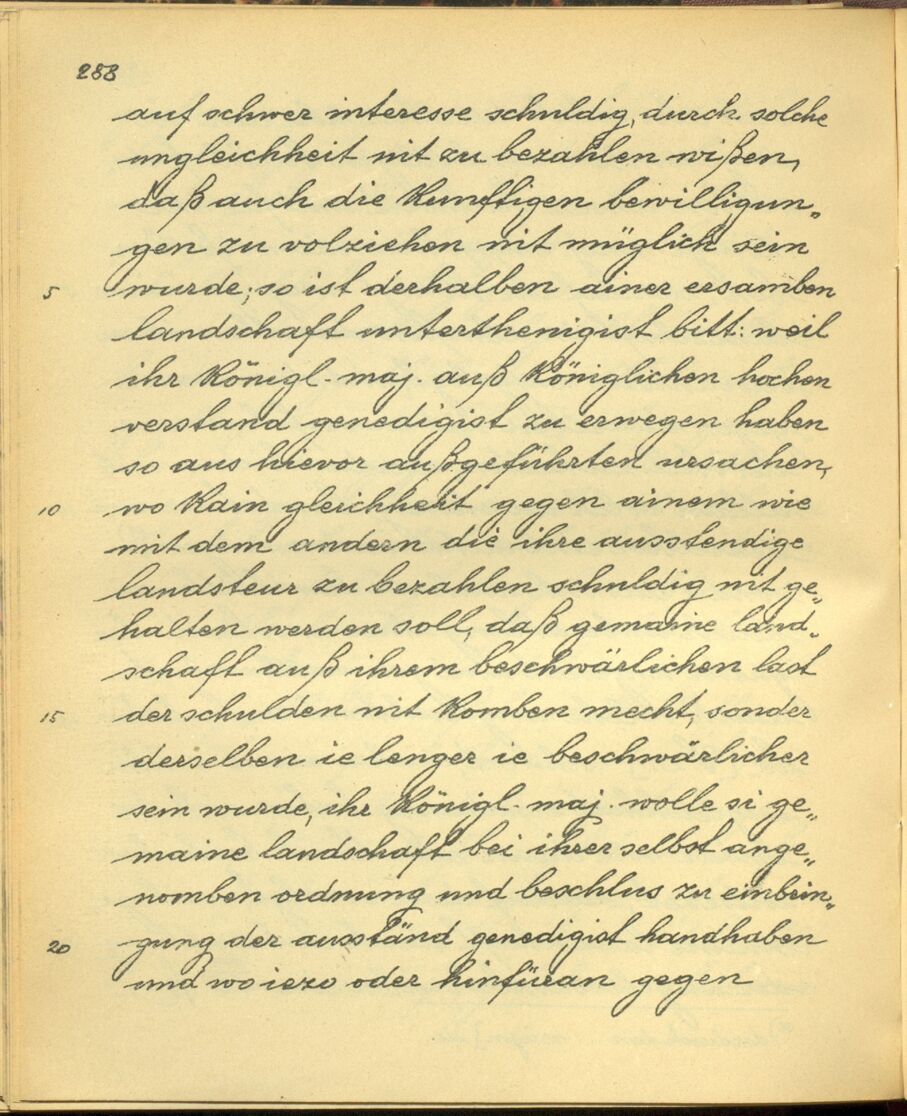 288
auf schwer interesse schuldig, durch solche
ungleichheit nit zu bezahlen wißen,
daß auch die kunfftigen bewilligun„
gen zu volziehen nit müglich sein
5 wurde; so ist derhalben ainer ersamben
landschaft unterthenigist bitt: weil
ihr königl. maj. auß königlichen hochen
verstand genedigist zu erwegen haben
so aus hievor außgeführten ursachen,
10 wo kain gleichheit gegen ainem wie
mit dem andern die ihre ausstendige
landsteur zu bezahlen schuldig nit ge„
halten werden soll, daß gemaine land„
schaft auß ihrem beschwärlichen last
15 der schulden nit komben mecht, sonder
derselben ie lenger ie beschwärlicher
sein wurde, ihr königl. maj. wolle si ge„
maine landschaft bei ihrer selbst ange„
nomben ordnung und beschlus zu einbrin„
20 gung der ausständ genedigist handhaben
und wo iezo oder hinfüran gegen